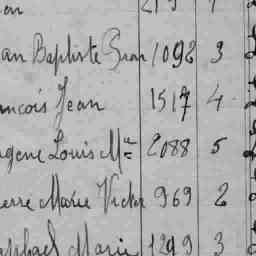 an Baptiste Jean 1092 3
ançois Jean 1517 4
ugène Louis Mie 2088 5
ierre Marie Victor 969 2
aphael Marie 1299 3